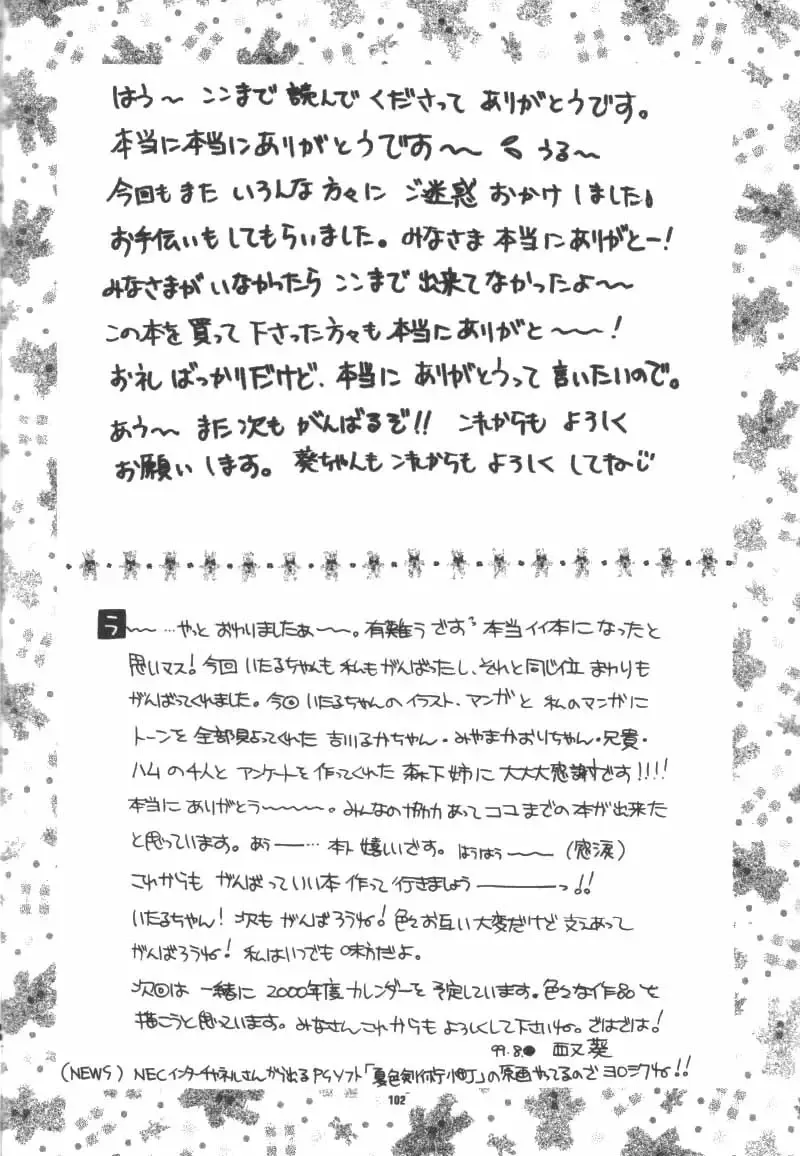 はう〜 ここまで 読んで くださって ありがとうです。
本当に本当にありがとうですの〜〜 うる〜
今回も また いろんな 方々に ご迷惑 おかけ しました
お手伝いも してもらいました。みなさま 本当に ありがとー!
みなさまが いなかったら ここまで 出来て なかったよ〜〜
この本を 買って 下さった 方々も 本当に ありがと〜〜!
お礼 ばっかりだけど、本当に ありがとうって 言いたいので。
あう〜 また 次も がんばるぞ!! これからも よろしく
お願い します。 葵ちゃんも これからも よろしく してね
う〜〜 …やっと おわりましたぁ〜〜。有難う ござます 本当 イイ本に なったと
思いマス! 今回 いたるちゃんも 私も がんばったし、それと 同じ位 まわりも
がんばってくれました。今回 いたるちゃんの イラスト、マンガと 私の マンガに
トーンを 全部貼ってくれた 吉川るかちゃん・みやまかおりちゃん・兄貴・
ハム の4人と アンケートを 作ってくれた 森下姉に 大大大感謝です!!!!
本当に ありがとう〜〜〜〜。みんなの協力 あって ココまでの 本が 出来た
と思っています。あぅ ――… 本ト 嬉しいです。 はうはう〜〜 (感涙)
これからも がんばって いい本 作って 行きましょう ―――っ!!
いたるちゃん! 次も がんばろうね! 色々お互い 大変だけど 支えあって
がんばろうね! 私は いつでも 味方だよ。
次回は 一緒に 2000年度 カレンダーを 予定しています。色々な 作品を
描こうと思っています。みなさん これからも よろしくして下さいね。ではでは!
99.8 葵
(NEWS) NECインターチャネルさんから出る PSソフト「夏色剣術小町」の原画 やってるので ヨロシクね!!
102